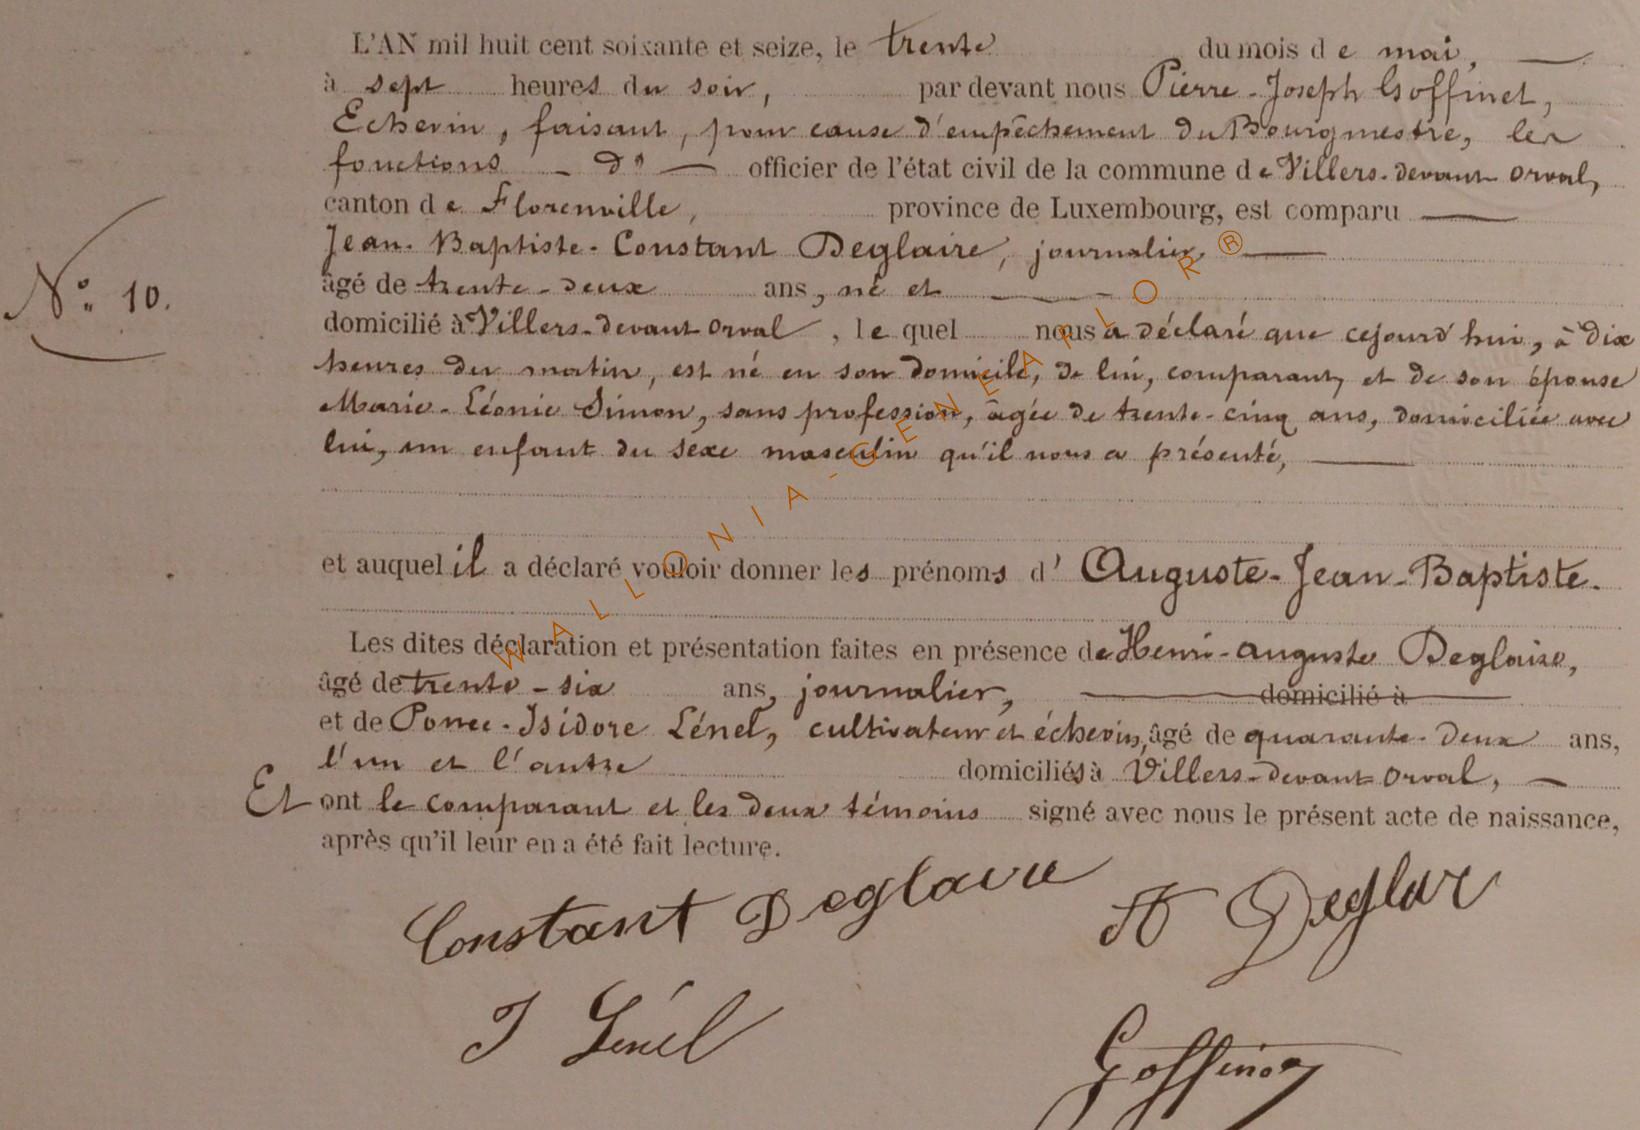 L'AN mil huit cent soixante et seize, le trente du mois de mai,
à sept heures du soir, par devant nous Pierre-Joseph Goffinet,
Echevin, faisant, pour cause d'empêchement du Bourgmestre, les
fonctions d' officier de l'état civil de la commune de Villers-devant-orval,
canton de Florenville, province de Luxembourg, est comparu
Jean-Baptiste-Constant Deglaire, journalier,
âgé de trente-deux ans, né et
N°. 10.
domicilié à Villers-devant-orval, lequel nous a déclaré que cejourd'hui, à dix
heures du matin, est né en son domicile, de lui, comparant, et de son épouse
Marie-Léonie Simon, sans profession, âgée de trente-cinq ans, domiciliée avec
lui, un enfant du sexe masculin qu'il nous a présenté,
et auquel il a déclaré vouloir donner les prénoms d'Auguste-Jean-Baptiste.
Les dites déclaration et présentation faites en présence de Henri-auguste Deglaire,
âgé de trente-six ans, journalier, domicilié à
et de Ponce-Isidore Lénel, cultivateur et échevin, âgé de quarante-deux ans,
l'un et l'autre domiciliés à Villers-devant-orval,
Et ont le comparant et les deux témoins signé avec nous le présent acte de naissance,
après qu'il leur en a été fait lecture.
Constant Deglaire H Deglair
I Lénel
Goffinet
WALLONIA-GENEAFLOR®